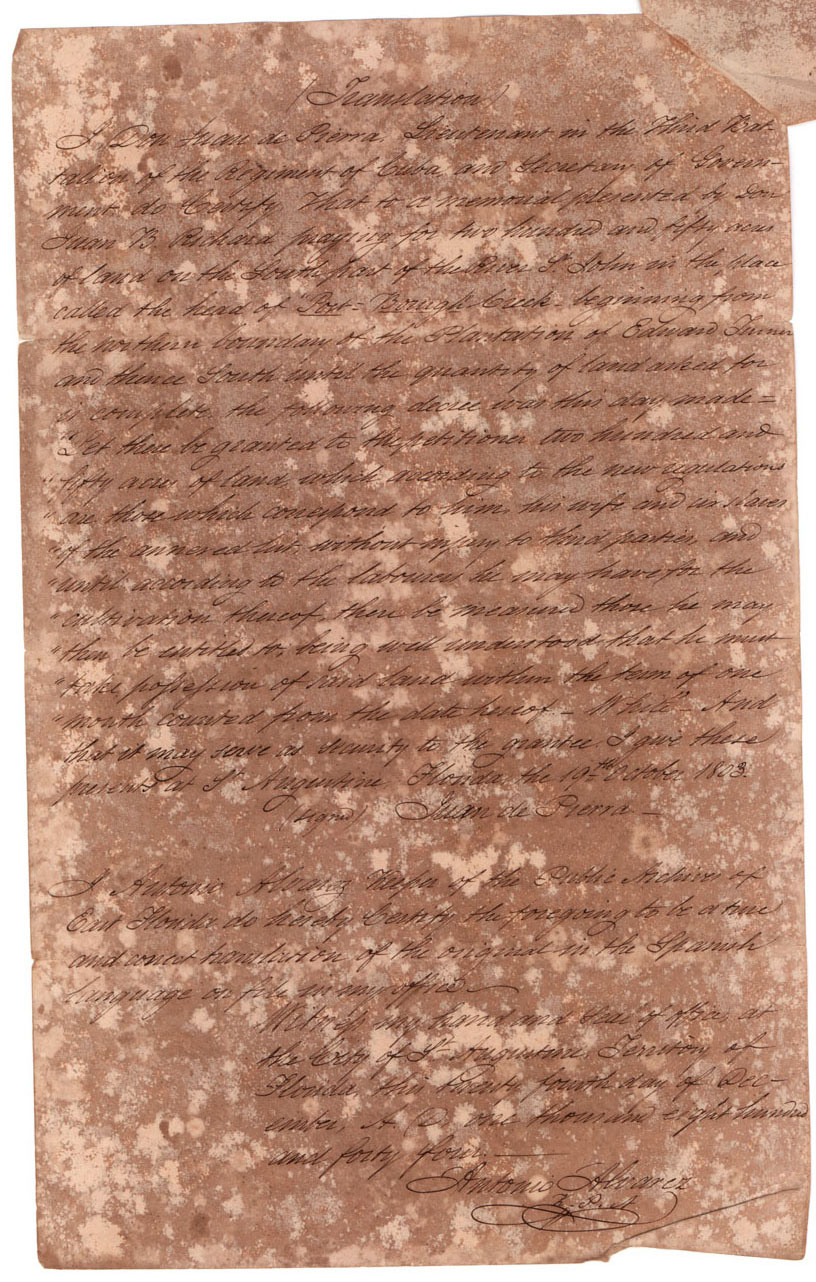 (Translation)
I Don Juan de Pierra, Lieutenant in the Third Bat-
talion of the Regiment of Cuba and Secretary of Govern-
ment, do Certify, That to a memorial presented by Don
Juan B. Richard praying for two hundred and fifty acres
of land on the South part of the River St. John in the place
called the head of "Port-Bough Creek" beginning from
the northern boundary of the Plantation of Edward Turner
and thence South until the quantity of land asked for
is complete, the following decree was this day made=
"Let there be granted to the petitioner two hundred and
"fifty acres of land which according to the new regulations
"are those which correspond to him, his wife and slaves
"of the annexed list, without injury to third parties, and
"until according to the labourers he may have for the
"cultivation thereof there be measured those he may
"then be entitled to, being well understood that he must
"take possession of said land within the term of one
"month counted from the date hereof - White" - And
that it may serve as security to the grantee I give these
presents at St Augustine Florida the 19th October 1803.
(signed) Juan de Pierra -
I Antonio Alvarez Keeper of the Public Archives of
East Florida do hereby Certify the foregoing to be a true
and correct translation of the original in the Spanish
language on file in my office.
Witness my hand and Seal of office, at
the City of St Augustine, Territory of
Florida, this twenty fourth day of Dec-
ember, A. D. one thousand eight hundred
and forty four. -
Antonio Alvarez